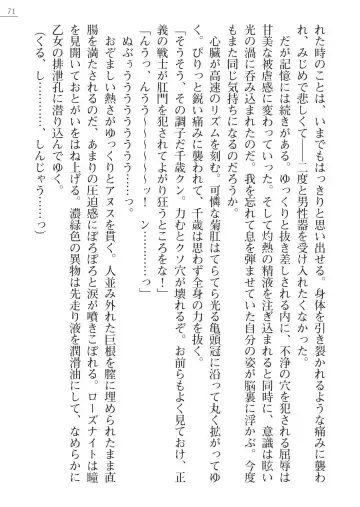 71
れた時のことは、いまでもはっきりと思い出せる。身体を引き裂かれるような痛みに襲わ
れ、みじめで悲しくて——二度と男性器を受け入れたくなかった。
だが記憶には続きがある。ゆっくりと抜き差しされる内に、不浄の穴を犯される屈辱は
甘美な被虐感に変わっていった。そして灼熱の精液を注ぎ込まれると同時に、意識は眩い
光の渦に呑み込まれたのだ。我を忘れて息を弾ませていた自分の姿が脳裏に浮かぶ。今度
もまた同じ気持ちになるのだろうか。
心臓が高速のリズムを刻む。可憐な菊肛はてらてら光る亀頭冠に沿って丸く拡がってゆ
く。ぴりっと鋭い痛みに襲われて、千歳は思わず全身の力を抜く。
「そうそう、その調子だ千歳クン。力むとクソ穴が壊れるぞ。お前らもよく見ておけ、正
義の戦士が肛門を犯されてよがり狂うところをな！」
「んうっ、んうう〜〜〜〜〜ッ！　ン…………っ」
ぬぷぅうううううううううううっ。
おぞましい熱さがゆっくりとアヌスを貫く。人並み外れた巨根を膣に埋められたまま直
腸を満たされるのだ、あまりの圧迫感にぽろぽろと涙が噴きこぼれる。ローズナイトは瞳
を見開いておとがいをはね上げる。濃緑色の異物は先走り液を潤滑油にして、なめらかに
乙女の排泄孔に潜り込んでゆく。
（くる、し…………、しんじゃう……っ）